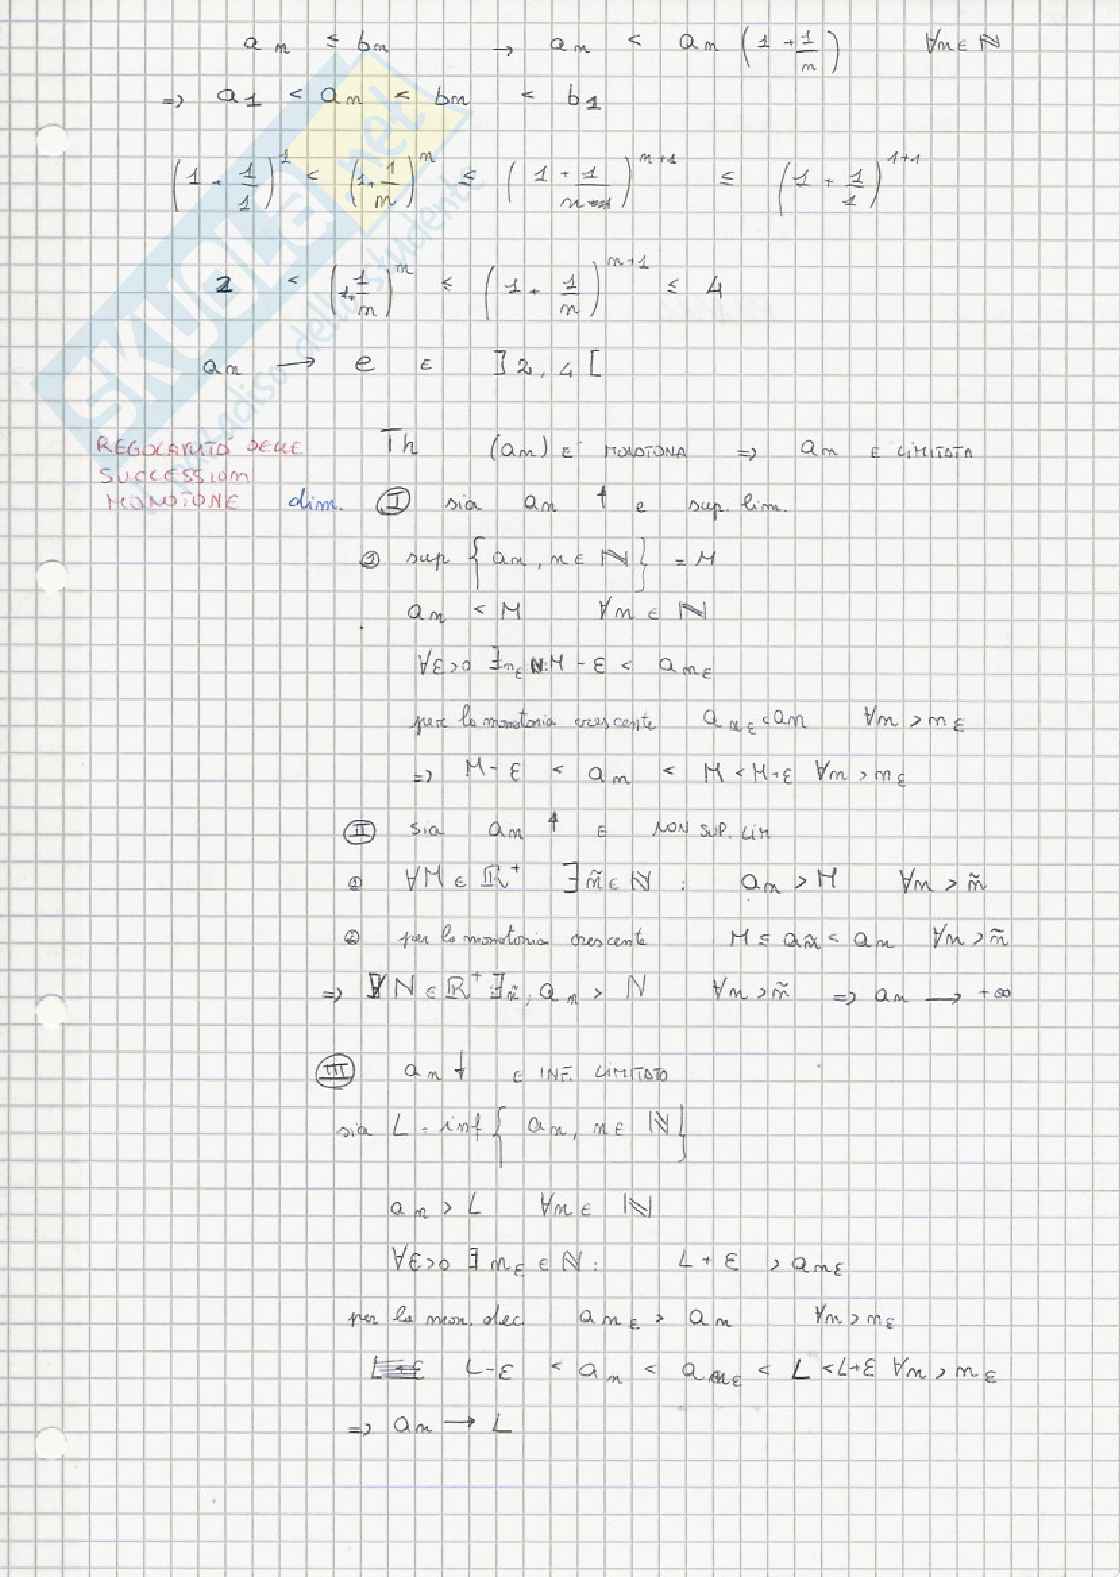 a_n ≤ b_n → a_n < a_n (1 + 1/n) ∀n ∈ ℕ
=> a_1 < a_n < b_n < b_1
(1 + 1/1)^1 < (1 + 1/n)^n ≤ (1 + 1/n)^{n+1} ≤ (1 + 1/1)^{1+1}
2 < (1 + 1/n)^n ≤ (1 + 1/n)^{n+1} ≤ 4
a_n → e ∈ ]2, 4[
REGOLARITÀ DELLE SUCCESSIONI MONOTONE
Th (a_n) È MONOTONA => a_n È LIMITATA
dim. Ⓘ sia a_n ↑ e sup. lim.
① sup {a_n, n ∈ ℕ} = M
a_n < M ∀n ∈ ℕ
∀ε>0 ∃n_ε ℕ: M - ε < a_{n_ε}
per la monotonia crescente a_{n_ε} < a_n ∀n > n_ε
=> M - ε < a_n < M < M + ε ∀n > n_ε
Ⅱ sia a_n ↑ E NON SUP. LIM
① ∀M ∈ ℝ⁺ ∃ñ ∈ ℕ : a_n > M ∀n > ñ
② per la monotonia crescente M ≤ a_ñ < a_n ∀n > ñ
=> ∀N ∈ ℝ⁺ ∃ñ, a_n > N ∀n > ñ => a_n → +∞
Ⅲ a_n ↓ E INF. LIMITATO
sia L = inf {a_n, n ∈ ℕ}
a_n > L ∀n ∈ ℕ
∀ε>0 ∃ n_ε ∈ ℕ : L + ε > a_{n_ε}
per la mon. dec. a_{n_ε} > a_n ∀n > n_ε
L - ε < a_n < a_{n_ε} < L < L + ε ∀n > n_ε
=> a_n → L
SKUOLA.net